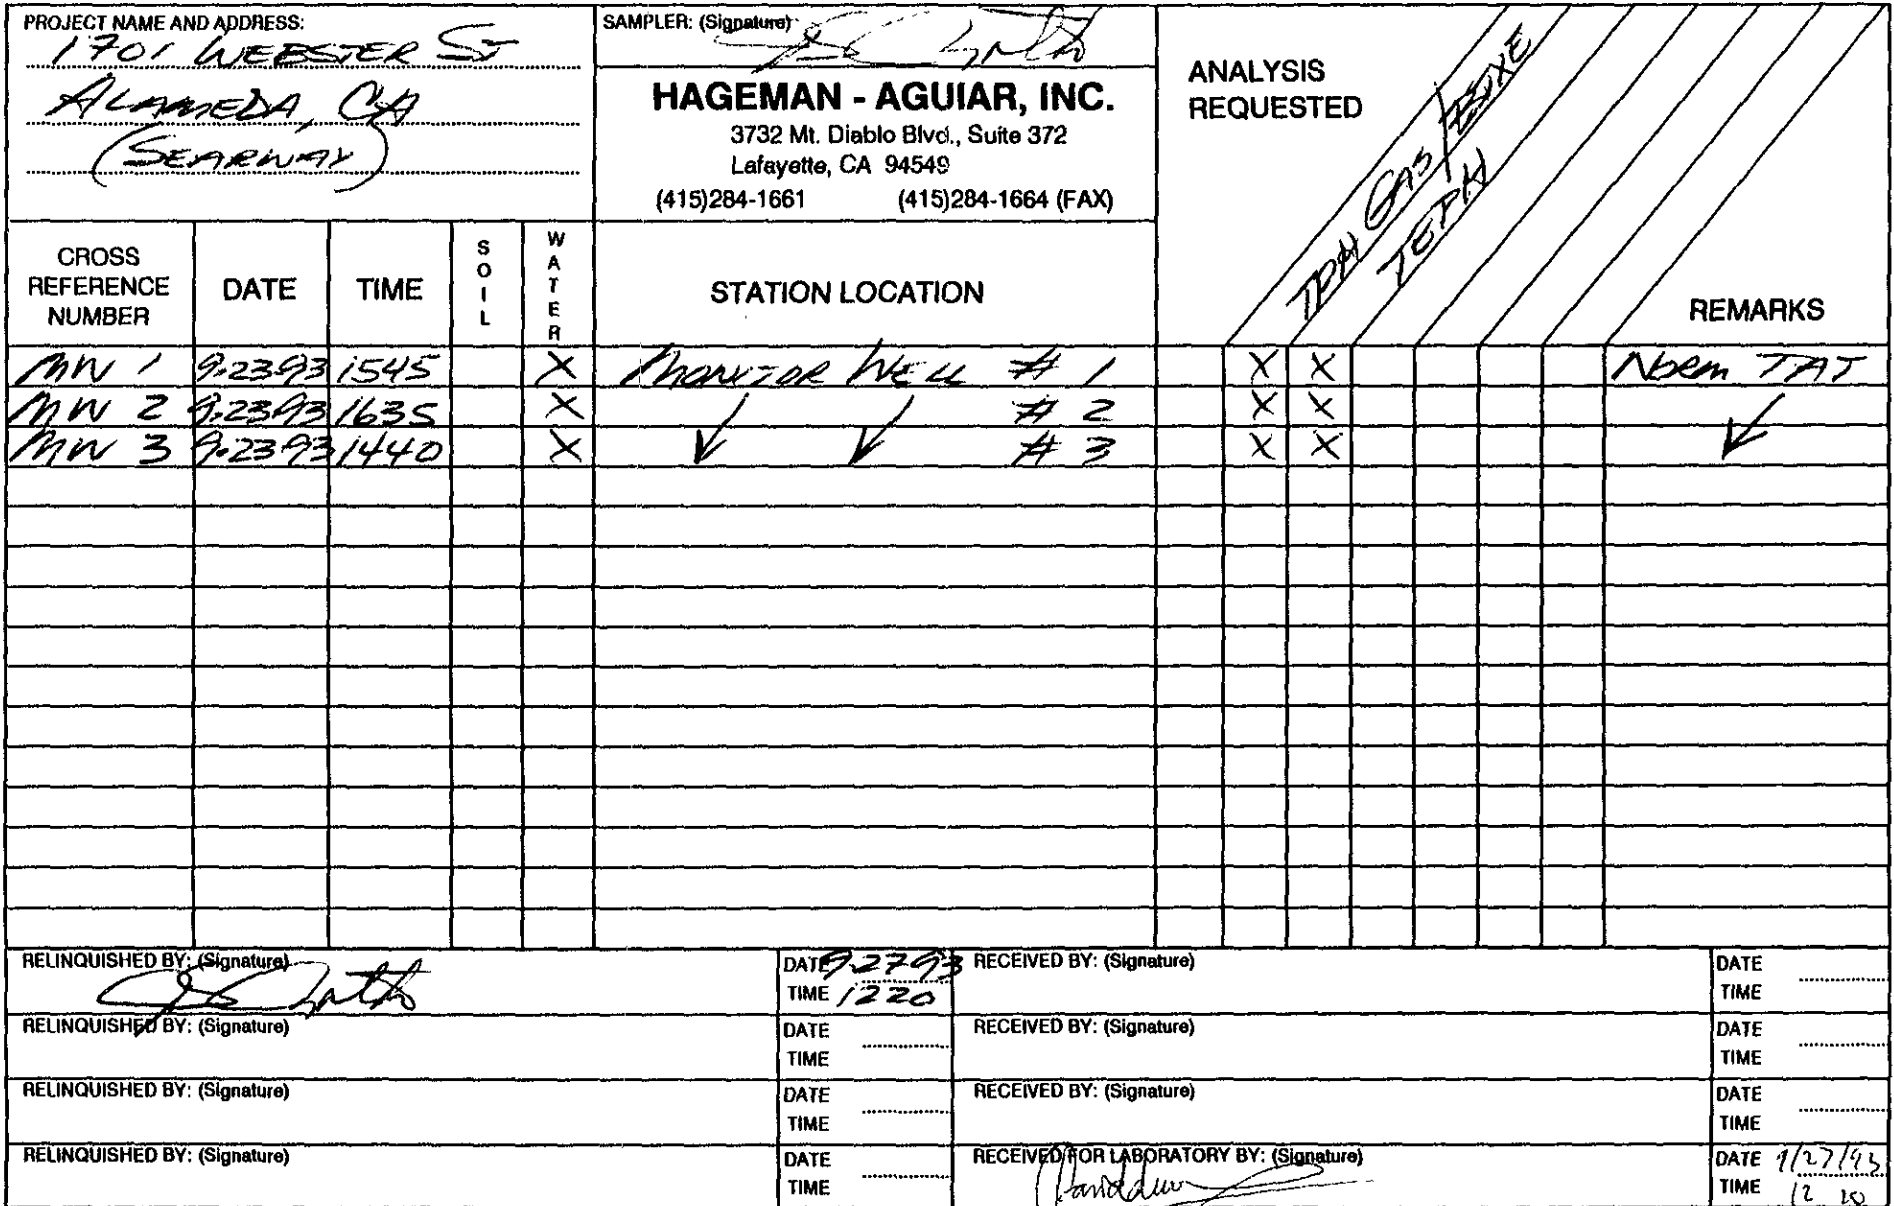 PROJECT NAME AND ADDRESS:
1701 WEBSTER ST
ALAMEDA, CA
(SEARWAY)
SAMPLER: (Signature)
HAGEMAN - AGUIAR, INC.
3732 Mt. Diablo Blvd., Suite 372
Lafayette, CA 94549
(415)284-1661 (415)284-1664 (FAX)
ANALYSIS
REQUESTED
TPH GAS/BTXE
TEPH
CROSS
REFERENCE
NUMBER
DATE
TIME
SOIL
WATER
STATION LOCATION
REMARKS
MW 1 9-23-93 1545 X MONITOR WELL # 1 X X NORM TAT
MW 2 9-23-93 1635 X # 2 X X
MW 3 9-23-93 1440 X # 3 X X
RELINQUISHED BY: (Signature)
DATE 9-27-93
TIME 1220
RECEIVED BY: (Signature)
DATE
TIME
RELINQUISHED BY: (Signature)
DATE
TIME
RECEIVED BY: (Signature)
DATE
TIME
RELINQUISHED BY: (Signature)
DATE
TIME
RECEIVED BY: (Signature)
DATE
TIME
RELINQUISHED BY: (Signature)
DATE
TIME
RECEIVED FOR LABORATORY BY: (Signature)
DATE 9/27/93
TIME